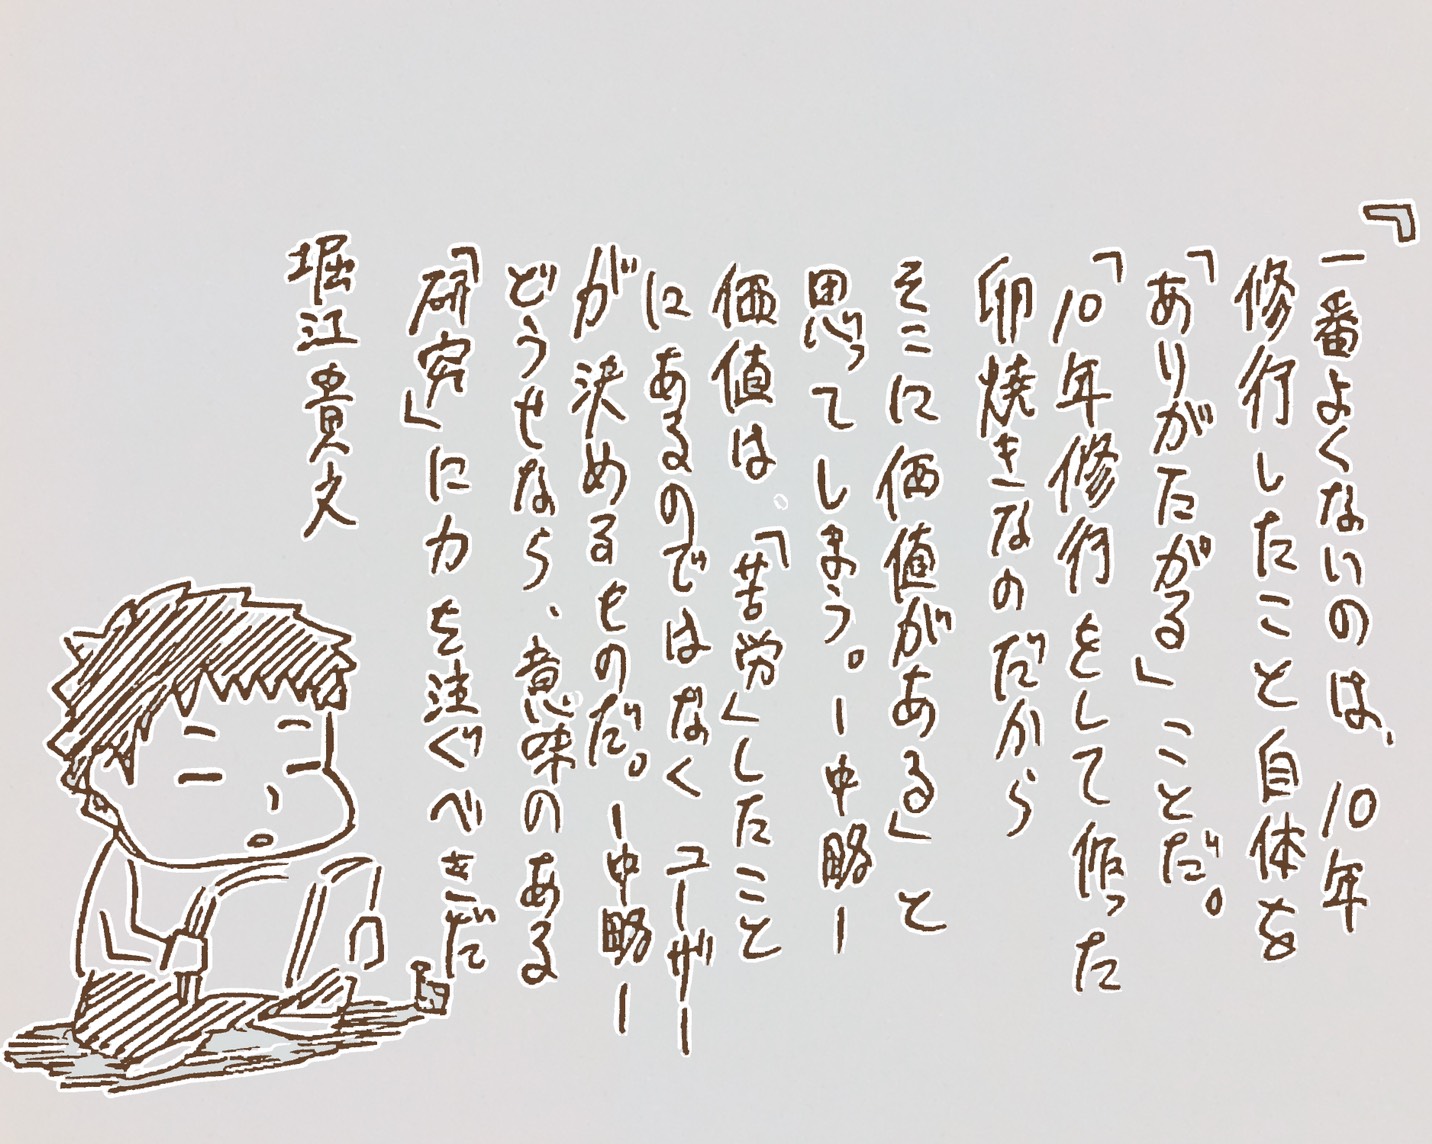 『
一番よくないのは、10年
修行したこと自体を
「ありがたがる」ことだ。
「10年修行をして作った
卵焼きなのだから
そこに価値がある」と
思ってしまう。ー中略ー
価値は。「苦労」したこと
にあるのではなくユーザー
が決めるものだ。ー中略ー
どうせなら、意味のある
「研究」に力を注ぐべきだ
堀江貴文